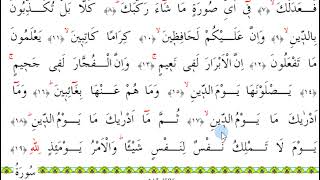 فَعَدَلَكَ ﴿٧﴾ فِىٓ اَىِّ صُورَةٍ مَا شَٓاءَ رَكَّبَكَ ﴿٨﴾ كَلَّا بَلْ تُكَذِّبُونَ
بِالدّ۪ينِ ﴿٩﴾ وَاِنَّ عَلَيْكُمْ لَحَافِظ۪ينَ ﴿١٠﴾ كِرَامًا كَاتِب۪ينَ ﴿١١﴾ يَعْلَمُونَ
مَا تَفْعَلُونَ ﴿١٢﴾ اِنَّ الْاَبْرَارَ لَف۪ى نَع۪يمٍ ﴿١٣﴾ وَاِنَّ الْفُجَّارَ لَف۪ى جَح۪يمٍ ﴿١٤﴾
يَصْلَوْنَهَا يَوْمَ الدّ۪ينِ ﴿١٥﴾ وَمَا هُمْ عَنْهَا بِغَٓائِب۪ينَ ﴿١٦﴾ وَمَٓا
اَدْرٰيكَ مَا يَوْمُ الدّ۪ينِ ﴿١٧﴾ ثُمَّ مَٓا اَدْرٰيكَ مَا يَوْمُ الدّ۪ينِ ﴿١٨﴾
يَوْمَ لَا تَمْلِكُ نَفْسٌ لِنَفْسٍ شَيْئًا وَالْاَمْرُ يَوْمَئِذٍ لِلّٰهِ ﴿١٩﴾
سُورَةُ